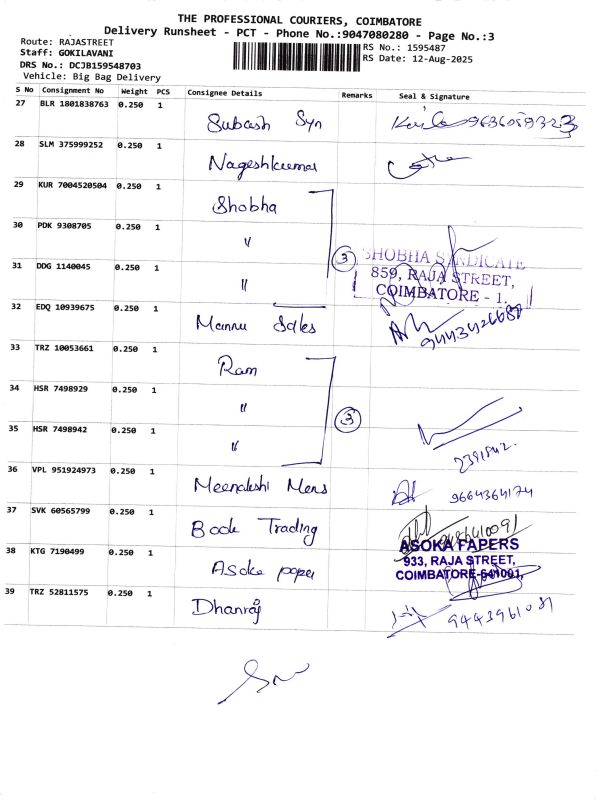 THE PROFESSIONAL COURIERS, COIMBATORE
Delivery Runsheet - PCT - Phone No.:9047080280 - Page No.:3
Route: RAJASTREET
Staff: GOKILAVANI
DRS No.: DCJB159548703
Vehicle: Big Bag Delivery
RS No.: 1595487
RS Date: 12-Aug-2025
S No Consignment No Weight PCS Consignee Details Remarks Seal & Signature
27 BLR 1801838763 0.250 1 Subash Syn
28 SLM 375999252 0.250 1 Nageshkumar
29 KUR 7004520504 0.250 1 Shobha
30 PDK 9308705 0.250 1 "
3
SHOBHA SYNDICATE
859, RAJA STREET,
COIMBATORE - 1.
31 DDG 1140045 0.250 1 "
32 EDQ 10939675 0.250 1 Mannu Sales
33 TRZ 10053661 0.250 1 Ram
34 HSR 7498929 0.250 1 "
3
35 HSR 7498942 0.250 1 "
2391842.
36 VPL 951924973 0.250 1 Meenakshi Mens 9664364174
37 SVK 60565799 0.250 1 Book Trading
38 KTG 7190499 0.250 1 Asoke paper
ASOKA PAPERS
933, RAJA STREET,
COIMBATORE-641001.
39 TRZ 52811575 0.250 1 Dhanraj 9443961081